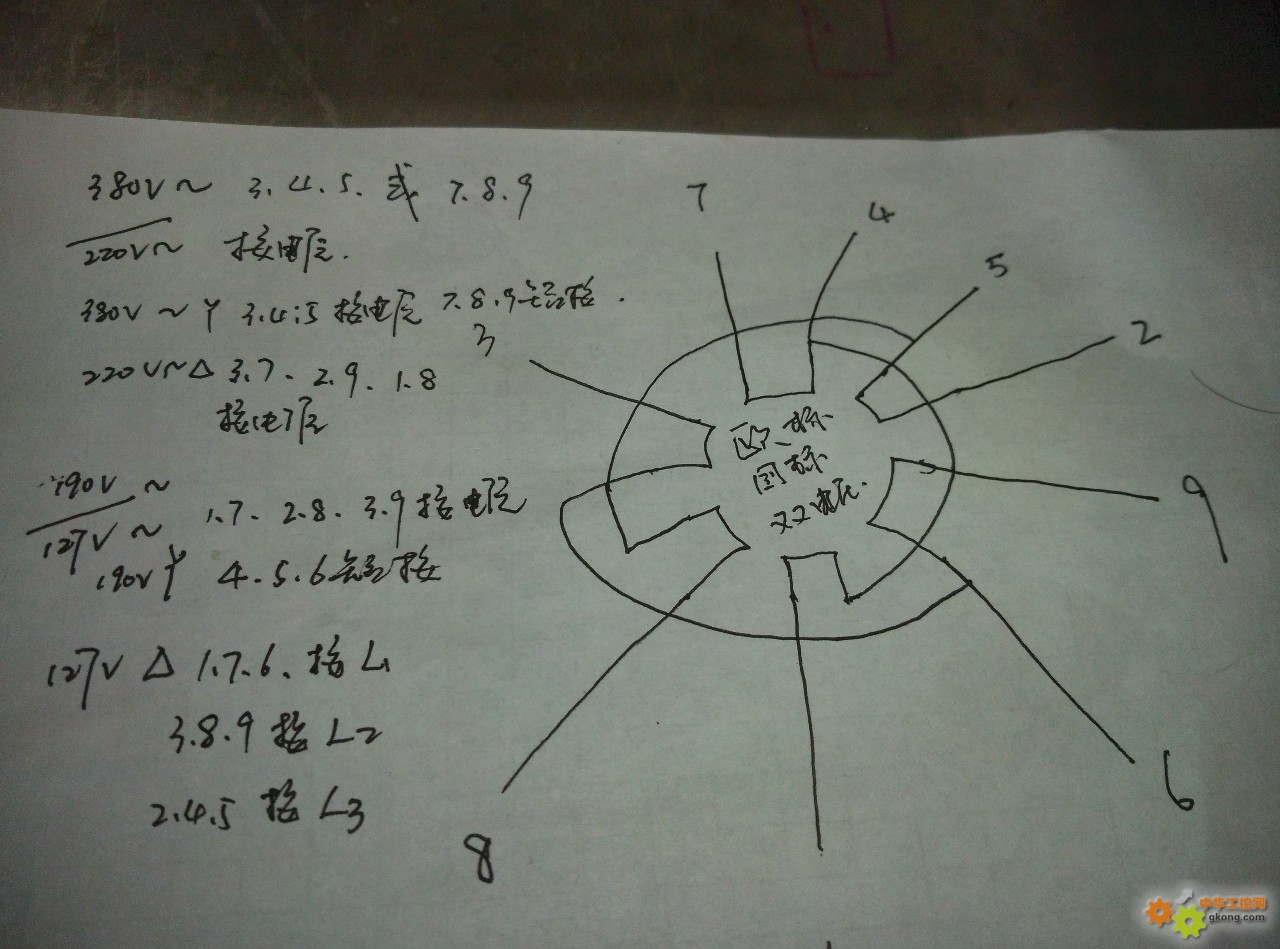 380V~ 3.4.5. 或 7.8.9
220V~ 接电压.
380V~Y 3.4.5接电压 7.8.9短接.
220V~△ 3.7. 2.9. 1.8
接电压
190V~
127V~ 1.7. 2.8. 3.9接电压
190VY 4.5.6短接
127V △ 1.7.6. 接L1
3.8.9 接 L2
2.4.5 接 L3
7
4
5
2
3
欧标
国标
双电压.
9
6
8
中华工控网
gkong.com